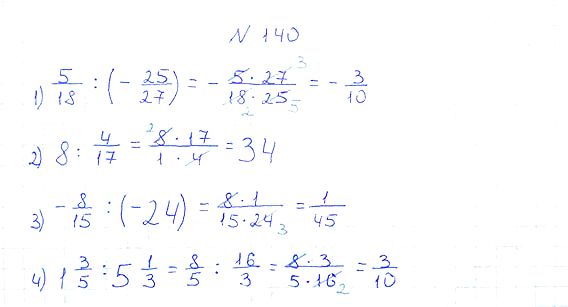 N 140
1) 5/18 : (- 25/27) = - 5 · 27 3/18 2 · 25 5 = - 3/10
2) 8 : 4/17 = 2 8 · 17/1 · 4 = 34
3) - 8/15 : (-24) = 8 · 1/15 · 24 3 = 1/45
4) 1 3/5 : 5 1/3 = 8/5 : 16/3 = 8 · 3/5 · 16 2 = 3/10